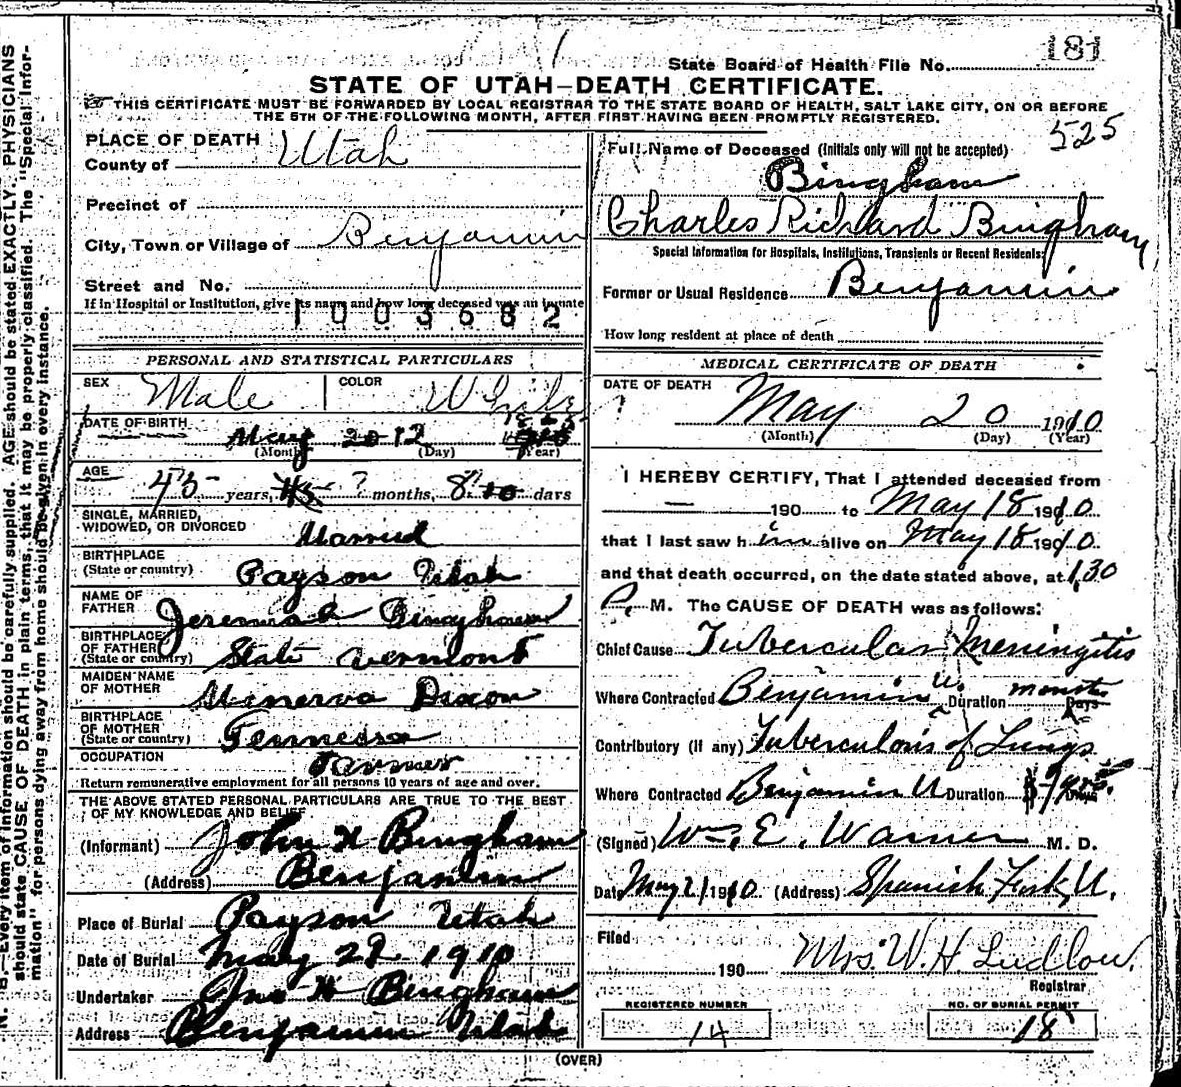 181
State Board of Health File No.
STATE OF UTAH—DEATH CERTIFICATE.
THIS CERTIFICATE MUST BE FORWARDED BY LOCAL REGISTRAR TO THE STATE BOARD OF HEALTH, SALT LAKE CITY, ON OR BEFORE
THE 5TH OF THE FOLLOWING MONTH, AFTER FIRST HAVING BEEN PROMPTLY REGISTERED.
525
PLACE OF DEATH
County of Utah
Precinct of
City, Town or Village of Benjamin
Street and No.
If in Hospital or Institution, give its name and how long deceased was an inmate
1003682
PERSONAL AND STATISTICAL PARTICULARS
SEX Male COLOR White
DATE OF BIRTH
May 20 12
(Month) (Day) (Year)
AGE
45 years, ? months, 8 days
SINGLE, MARRIED,
WIDOWED, OR DIVORCED Married
BIRTHPLACE
(State or country) Payson Utah
NAME OF
FATHER Jeremiah Bingham
BIRTHPLACE
OF FATHER
(State or country) State Vermont
MAIDEN NAME
OF MOTHER Menerva Dixon
BIRTHPLACE
OF MOTHER
(State or country) Tennessee
OCCUPATION Farmer
Return remunerative employment for all persons 10 years of age and over.
THE ABOVE STATED PERSONAL PARTICULARS ARE TRUE TO THE BEST
OF MY KNOWLEDGE AND BELIEF
(Informant) John H Bingham
(Address) Benjamin
Place of Burial Payson Utah
Date of Burial May 22 1910
Undertaker Jno H Bingham
Address Benjamin Utah
Full Name of Deceased (Initials only will not be accepted)
Bingham
Charles Richard Bingham
Special Information for Hospitals, Institutions, Transients or Recent Residents:
Former or Usual Residence Benjamin
How long resident at place of death
MEDICAL CERTIFICATE OF DEATH
DATE OF DEATH
May 20 1910
(Month) (Day) (Year)
I HEREBY CERTIFY, That I attended deceased from
— 190 to May 18 1910
that I last saw him alive on May 18 1910
and that death occurred, on the date stated above, at 1,30
P. M. The CAUSE OF DEATH was as follows:
Chief Cause Tubercular Meningitis
Where Contracted Benjamin U. Duration months Days
Contributory (if any) Tuberculosis of Lungs
Where Contracted Benjamin U Duration
(Signed) Wm. E. Warner M. D.
Date May 21 1910 (Address) Spanish Fork, U.
Filed
190 Mrs. W. H. Ludlow.
Registrar
REGISTERED NUMBER
14
NO. OF BURIAL PERMIT
18
(OVER)
N. B.—Every item of information should be carefully supplied. AGE should be stated EXACTLY. PHYSICIANS
should state CAUSE OF DEATH in plain terms, that it may be properly classified. The "Special Infor-
mation" for persons dying away from home should be given in every instance.